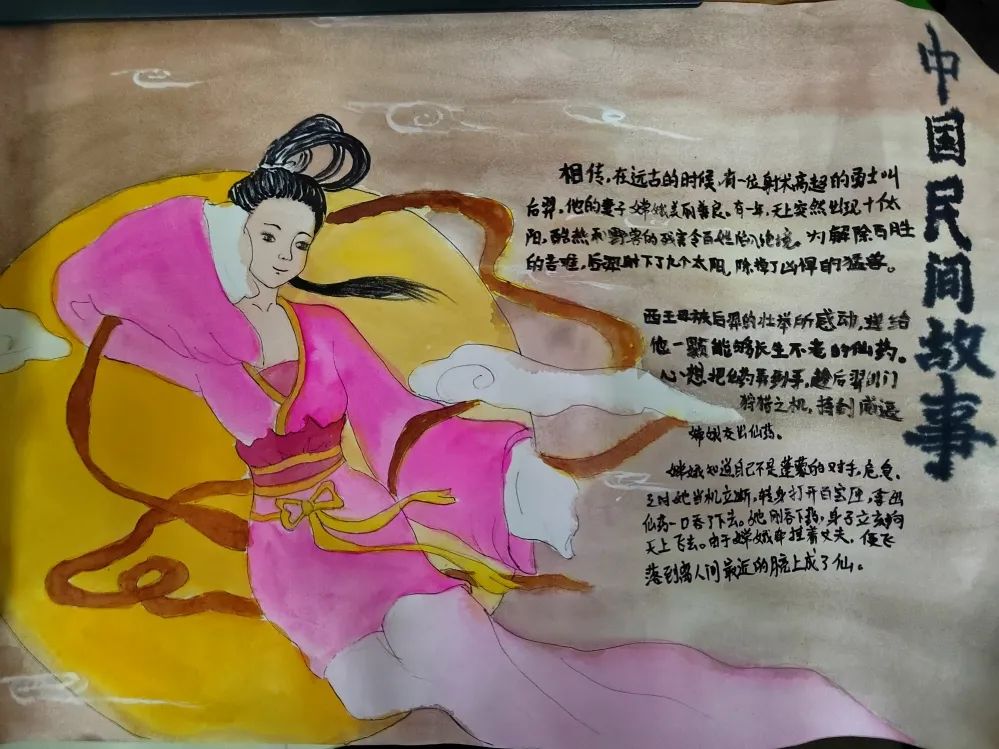 中国民间故事
相传,在远古的时候,有一位射术高超的勇士叫
后羿,他的妻子嫦娥美丽善良。有一年,天上突然出现十个太
阳,酷热和野兽的残害令百姓陷入绝境。为解除百姓
的苦难,后羿射下了九个太阳,除掉了凶悍的猛兽。
西王母被后羿的壮举所感动,送给
他一颗能够长生不老的仙药。
心想把仙药弄到手,趁后羿出门
狩猎之机,持剑威逼
嫦娥交出仙药。
嫦娥知道自己不是蓬蒙的对手,危急
之时她当机立断,转身打开百宝匣,拿出
仙药一口吞了下去。她刚吞下药,身子立刻向
天上飞去。由于嫦娥牵挂着丈夫,便飞
落到离人间最近的月亮上成了仙。